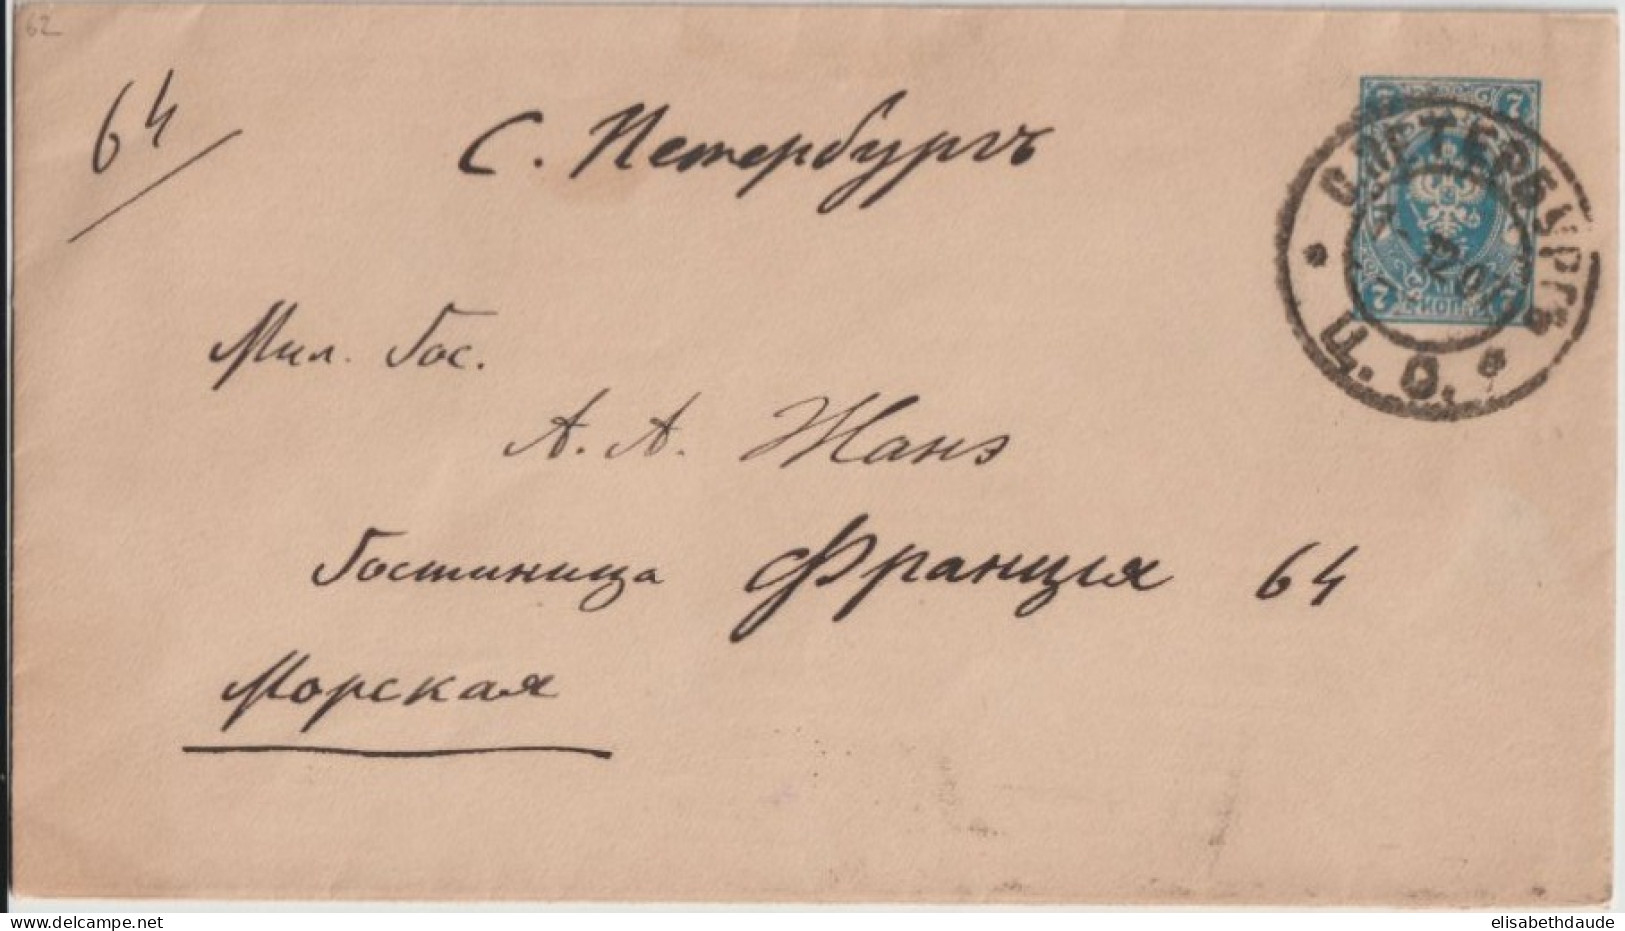 62
64
С. Петербургъ
7 7
С.ПЕТЕРБУРГЪ
7 КОП. 7
Ц. О.
Мил. Гос.
А. А. Жанэ
Гостиница Франція 64
Морская
www.delcampe.net
elisabethdaude